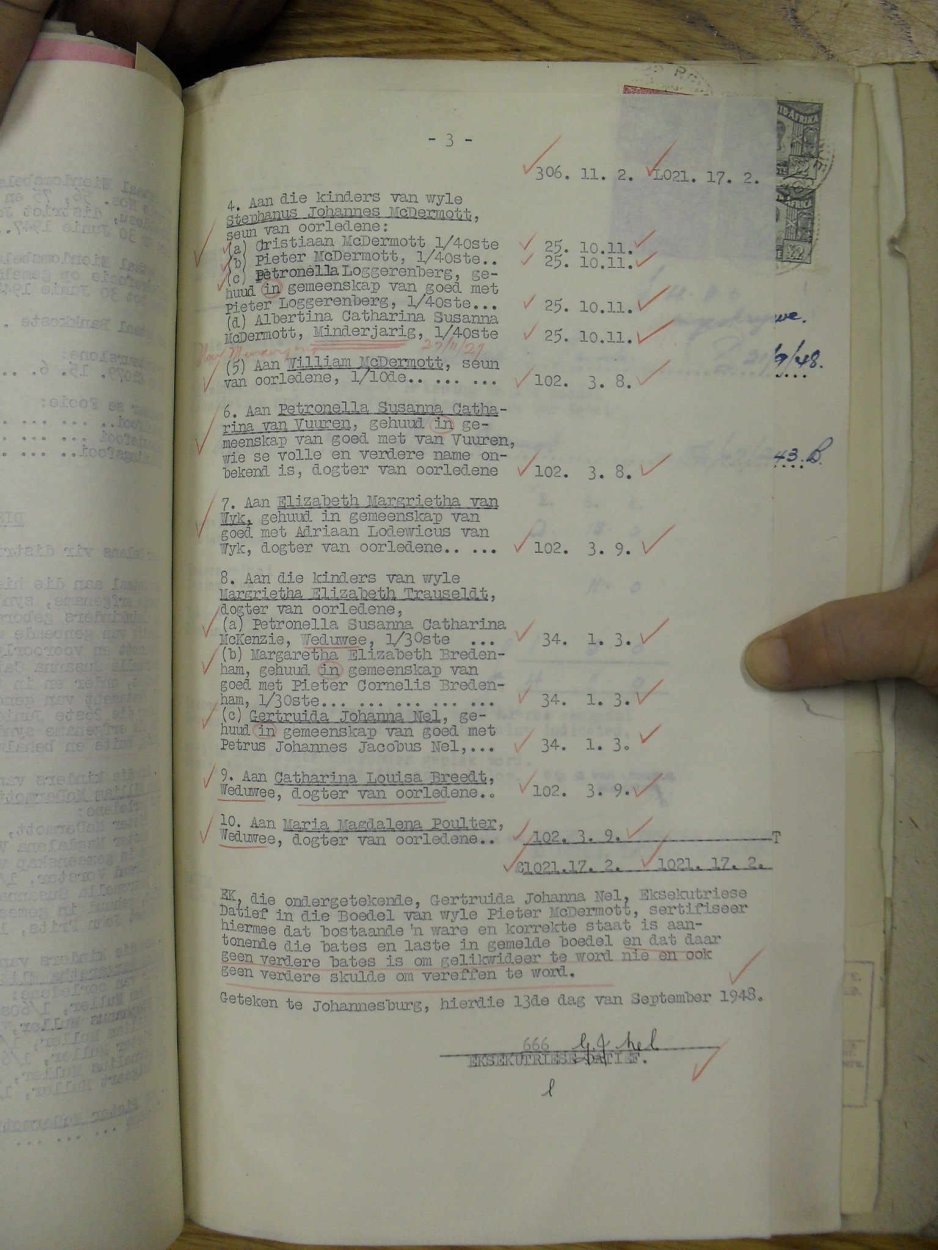 - 3 -
306. 11. 2. L021. 17. 2.
4. Aan die kinders van wyle
Stephanus Johannes McDermott,
seun van oorledene:
(a) Cristiaan McDermott 1/40ste 25. 10.11.
(b) Pieter McDermott, 1/40ste.. 25. 10.11.
(c) Petronella Loggerenberg, ge-
huud in gemeenskap van goed met
Pieter Loggerenberg, 1/40ste... 25. 10.11.
(d) Albertina Catharina Susanna
McDermott, Minderjarig, 1/40ste 25. 10.11.
(5) Aan William McDermott, seun
van oorledene, 1/10de.. ... ... 102. 3. 8.
6. Aan Petronella Susanna Catha-
rina van Vuuren, gehuud in ge-
meenskap van goed met van Vuuren,
wie se volle en verdere name on-
bekend is, dogter van oorledene 102. 3. 8.
7. Aan Elizabeth Margrietha van
Wyk, gehuud in gemeenskap van
goed met Adriaan Lodewicus van
Wyk, dogter van oorledene.. ... 102. 3. 9.
8. Aan die kinders van wyle
Margrietha Elizabeth Trauseldt,
dogter van oorledene,
(a) Petronella Susanna Catharina
McKenzie, Weduwee, 1/30ste ... 34. 1. 3.
(b) Margaretha Elizabeth Breden-
ham, gehuud in gemeenskap van
goed met Pieter Cornelis Breden-
ham, 1/30ste... ... ... ... ... 34. 1. 3.
(c) Gertruida Johanna Nel, ge-
huud in gemeenskap van goed met
Petrus Johannes Jacobus Nel,... 34. 1. 3.
9. Aan Catharina Louisa Breedt,
Weduwee, dogter van oorledene.. 102. 3. 9.
10. Aan Maria Magdalena Poulter,
Weduwee, dogter van oorledene.. 102. 3. 9. T
£1021.17. 2. 1021. 17. 2.
EK, die ondergetekende, Gertruida Johanna Nel, Eksekutriese
Datief in die Boedel van wyle Pieter McDermott, sertifiseer
hiermee dat bostaande 'n ware en korrekte staat is aan-
tonende die bates en laste in gemelde boedel en dat daar
geen verdere bates is om gelikwideer te word nie en ook
geen verdere skulde om vereffen te word.
Geteken te Johannesburg, hierdie 13de dag van September 1948.
666 G J Nel
EKSEKUTRIESE DATIEF.